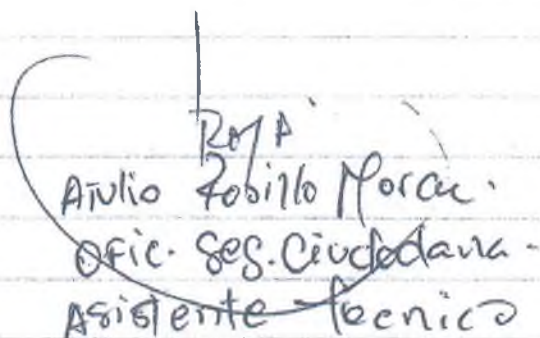 Julio Robillo Moran.
Ofic. Seg. Ciudadana -
Asistente Tecnico